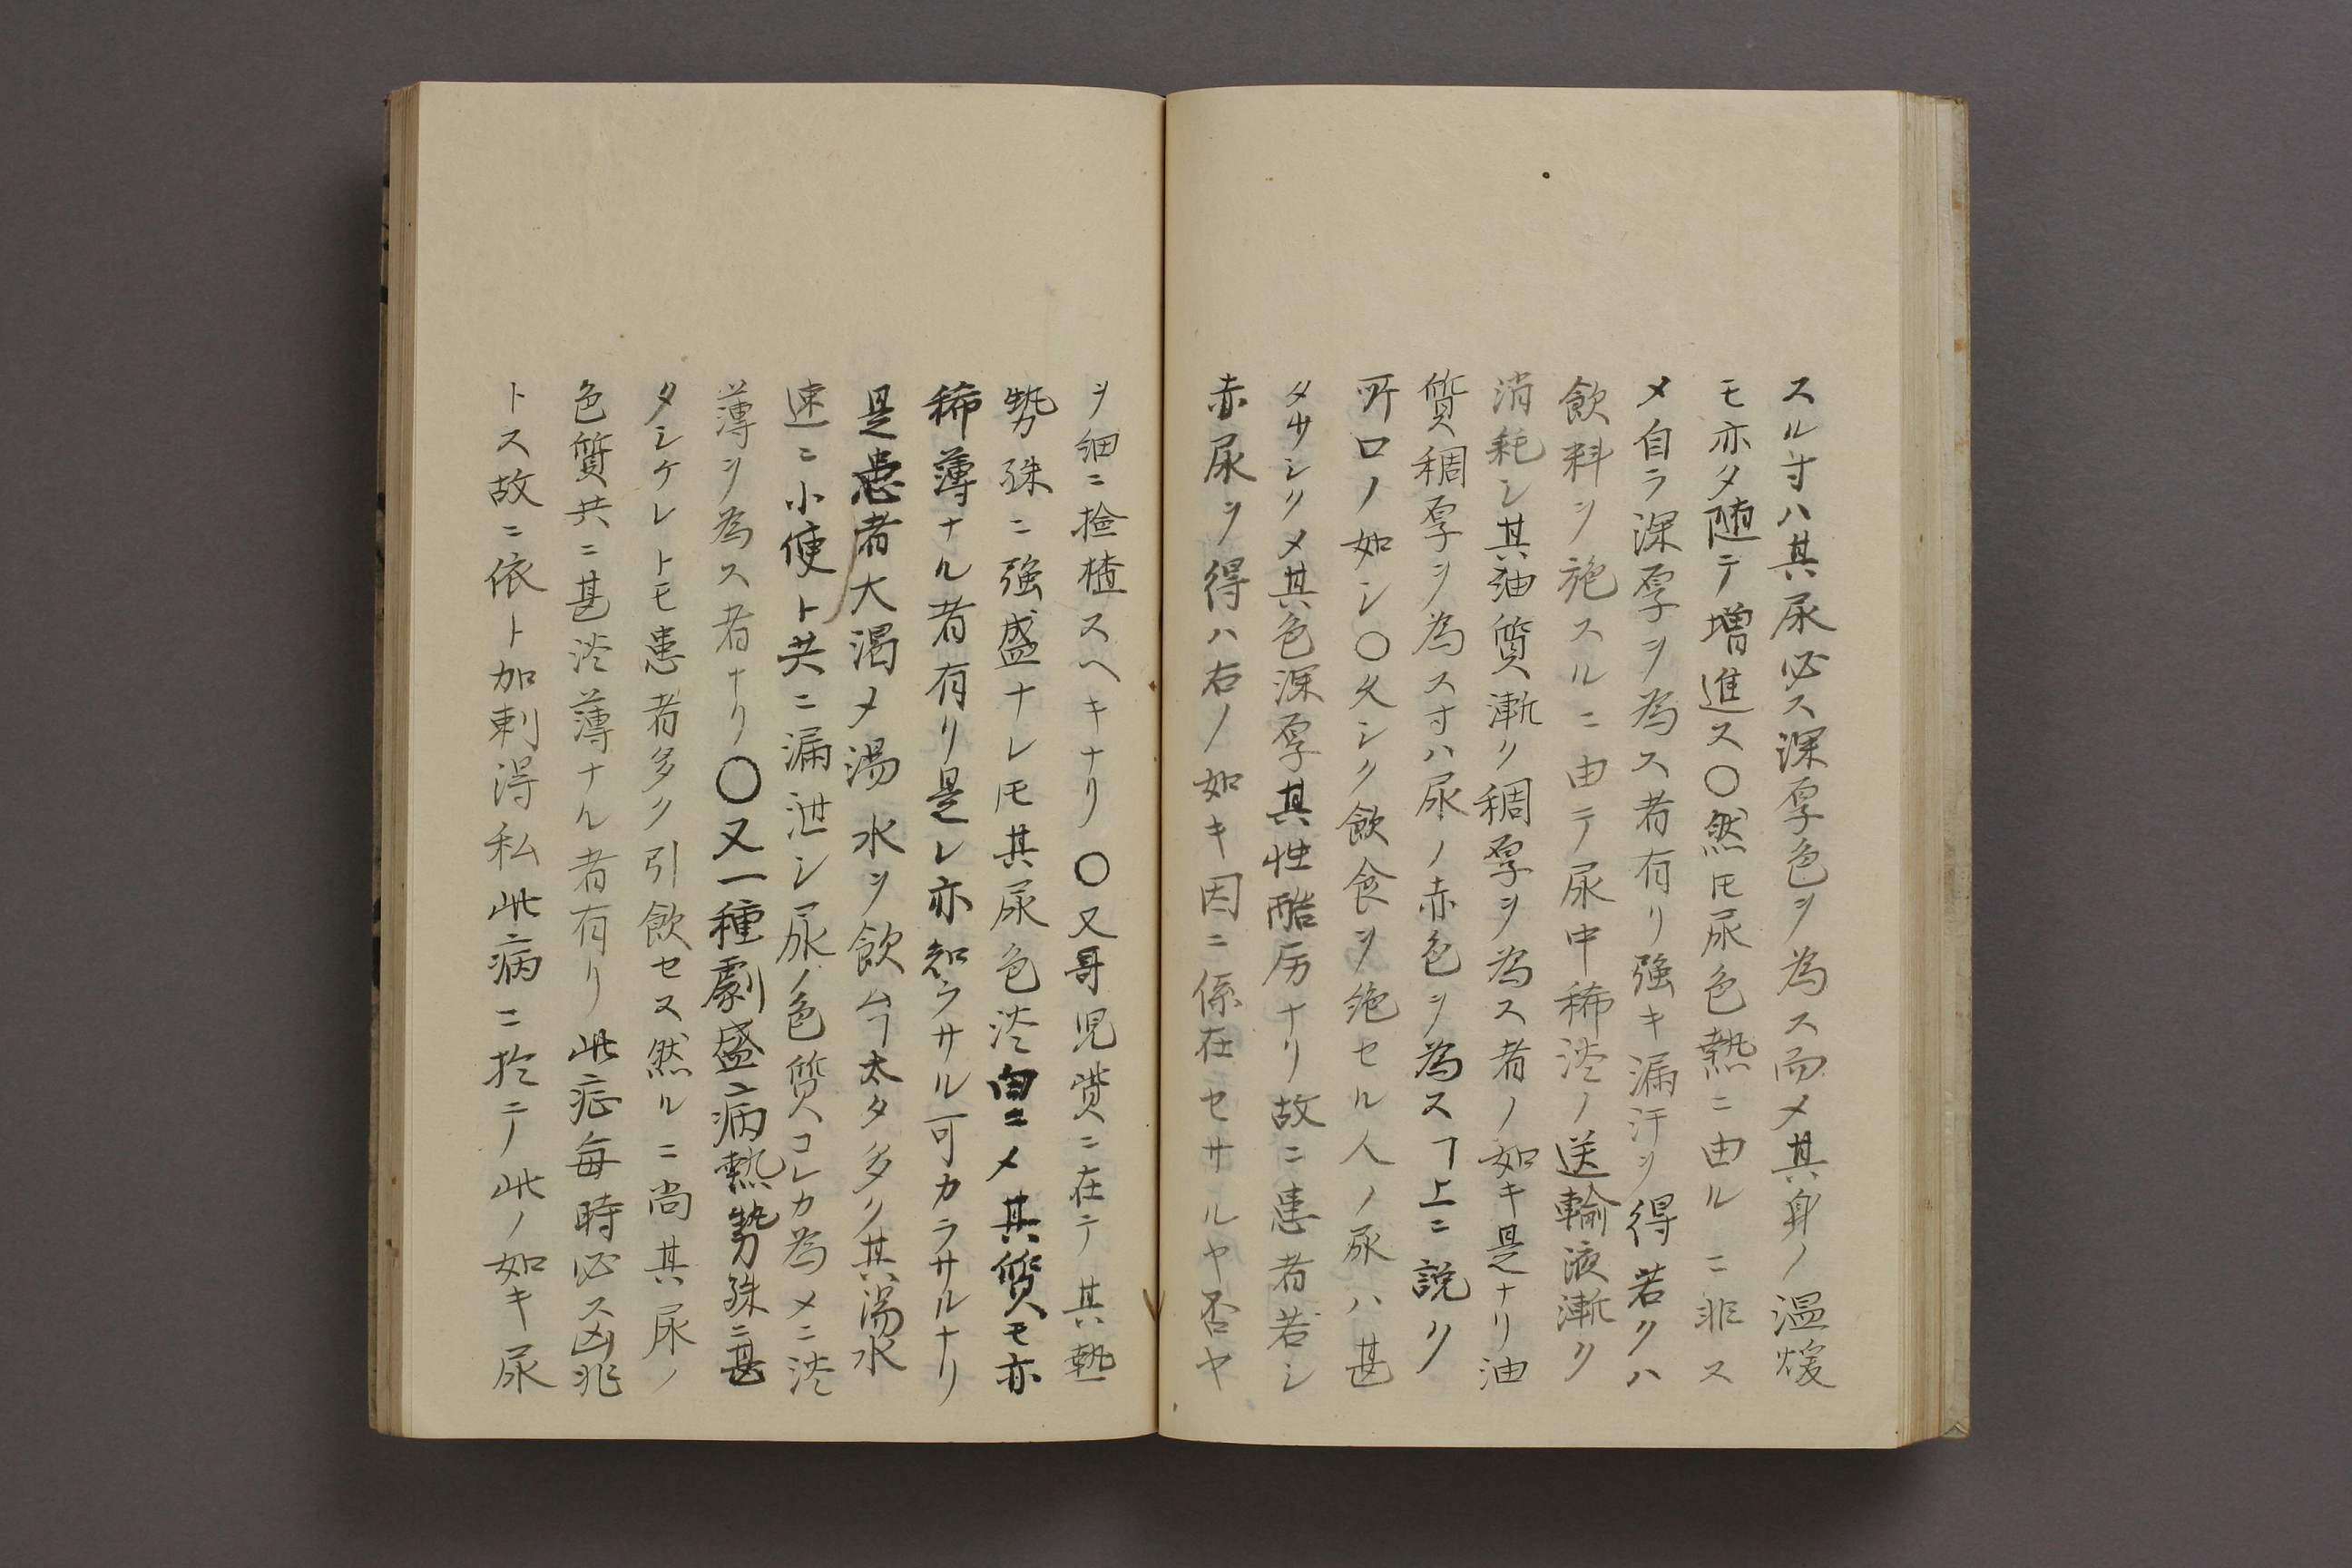 スル寸ハ其尿必ス深厚色ヲ為ス而メ其身ノ温煖
モ亦タ随テ増進ス〇然𪜈尿色熱ニ由ルニ非ス
メ自ラ深厚ヲ為ス者有リ強キ漏汗ヲ得若クハ
飲料ヲ施スルニ由テ尿中稀淡ノ送輸液漸ク
消耗シ其油質漸ク稠厚ヲ為ス者ノ如キ是ナリ油
質稠厚ヲ為ス寸ハ尿ノ赤色ヲ為スヿ上ニ説ク
所ロノ如シ〇久シク飲食ヲ絶セル人ノ尿ハ甚
タ少シクメ其色深厚其性酷厉ナリ故ニ患者若シ
赤尿ヲ得ハ右ノ如キ因ニ係在セサルヤ否ヤ
ヲ細ニ捡楂スヘキナリ〇又哥児䝿ニ在テ其熱
勢殊ニ強盛ナレ𪜈其尿色淡白ニメ其質モ亦
稀薄ナル者有リ是レ亦知ラサル可カラサルナリ
是患者大渇メ湯水ヲ飲ムヿ太タ多ク其湯水
速ニ小便ト共ニ漏泄シ尿ノ色質コレカ為メニ淡
薄ヲ為ス者ナリ〇又一種劇盛病熱勢殊ニ甚
タシケレトモ患者多ク引飲セス然ルニ尚其尿ノ
色質共ニ甚淡薄ナル者有リ此症毎時必ス凶兆
トス故ニ依卜加剌得私此病ニ於テ此ノ如キ尿